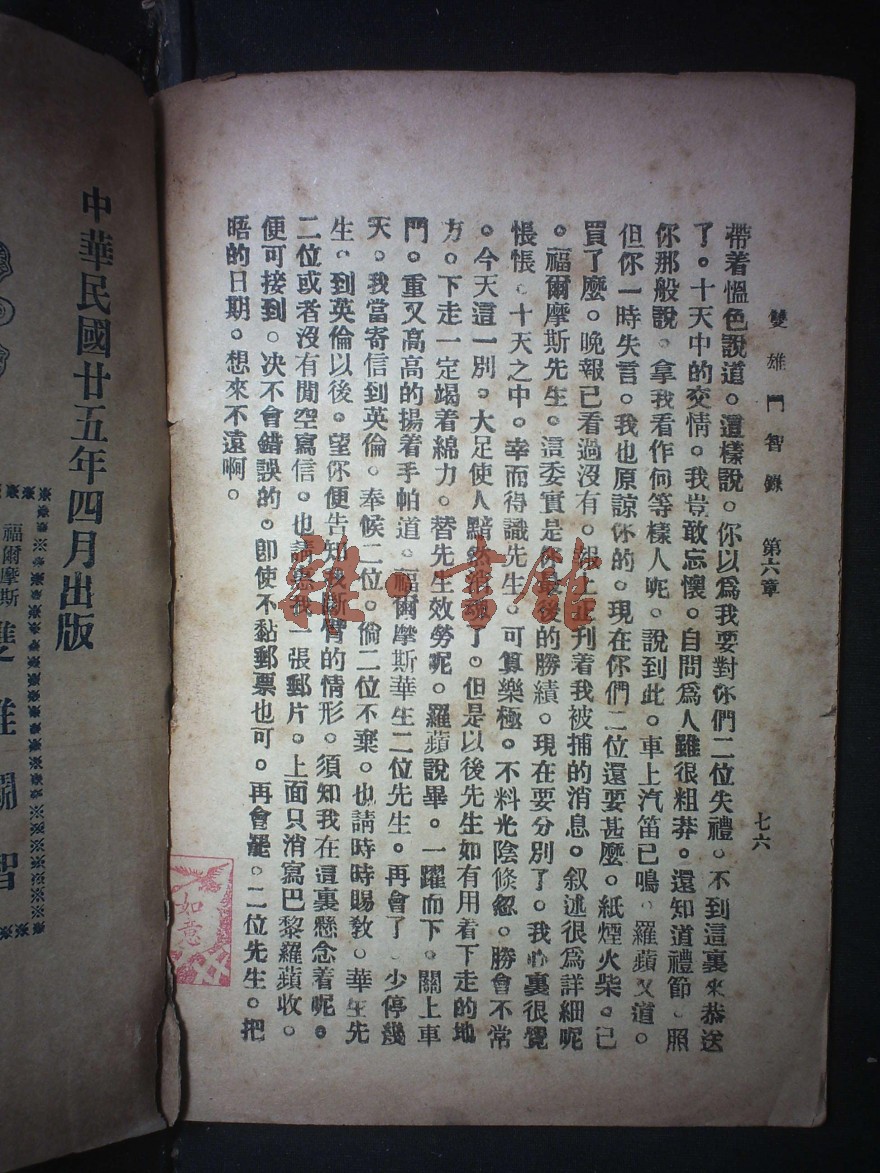 雙雄鬥智錄　第六章　七六
帶着慍色說道。這樣說。你以爲我要對你們二位失禮。不到這裏來恭送
了。十天中的交情。我豈敢忘懷。自問爲人雖很粗莽。還知道禮節。照
你那般說。拿我看作何等樣人呢。說到此。車上汽笛已鳴。羅蘋又道。
但你一時失言。我也原諒你的。現在你們二位還要甚麽。紙煙火柴。已
買了麽。晚報已看過沒有。報上正刊着我被捕的消息。叙述很爲詳細呢
。福爾摩斯先生。這委實是你最後的勝績。現在要分別了。我心裏很覺
悵悵。十天之中。幸而得識先生。可算樂極。不料光陰倏忽。勝會不常
。今天這一別。大足使人黯然消魂了。但是以後先生如有用着下走的地
方。下走一定竭着綿力。替先生效勞呢。羅蘋說畢。一躍而下。關上車
門。重又高高的揚着手帕道。福爾摩斯華生二位先生。再會了。少停幾
天。我當寄信到英倫。奉候二位。倘二位不棄。也請時時賜敎。華生先
生。到英倫以後。望你便告知我斷臂的情形。須知我在這裏懸念着呢。
二位或者沒有閒空寫信。也請惠我一張郵片。上面只消寫巴黎羅蘋收。
便可接到。决不會錯誤的。即使不黏郵票也可。再會罷。二位先生。把
晤的日期。想來不遠啊。
雜·書館
如意
中華民國廿五年四月出版
福爾摩斯
雙雄鬭智